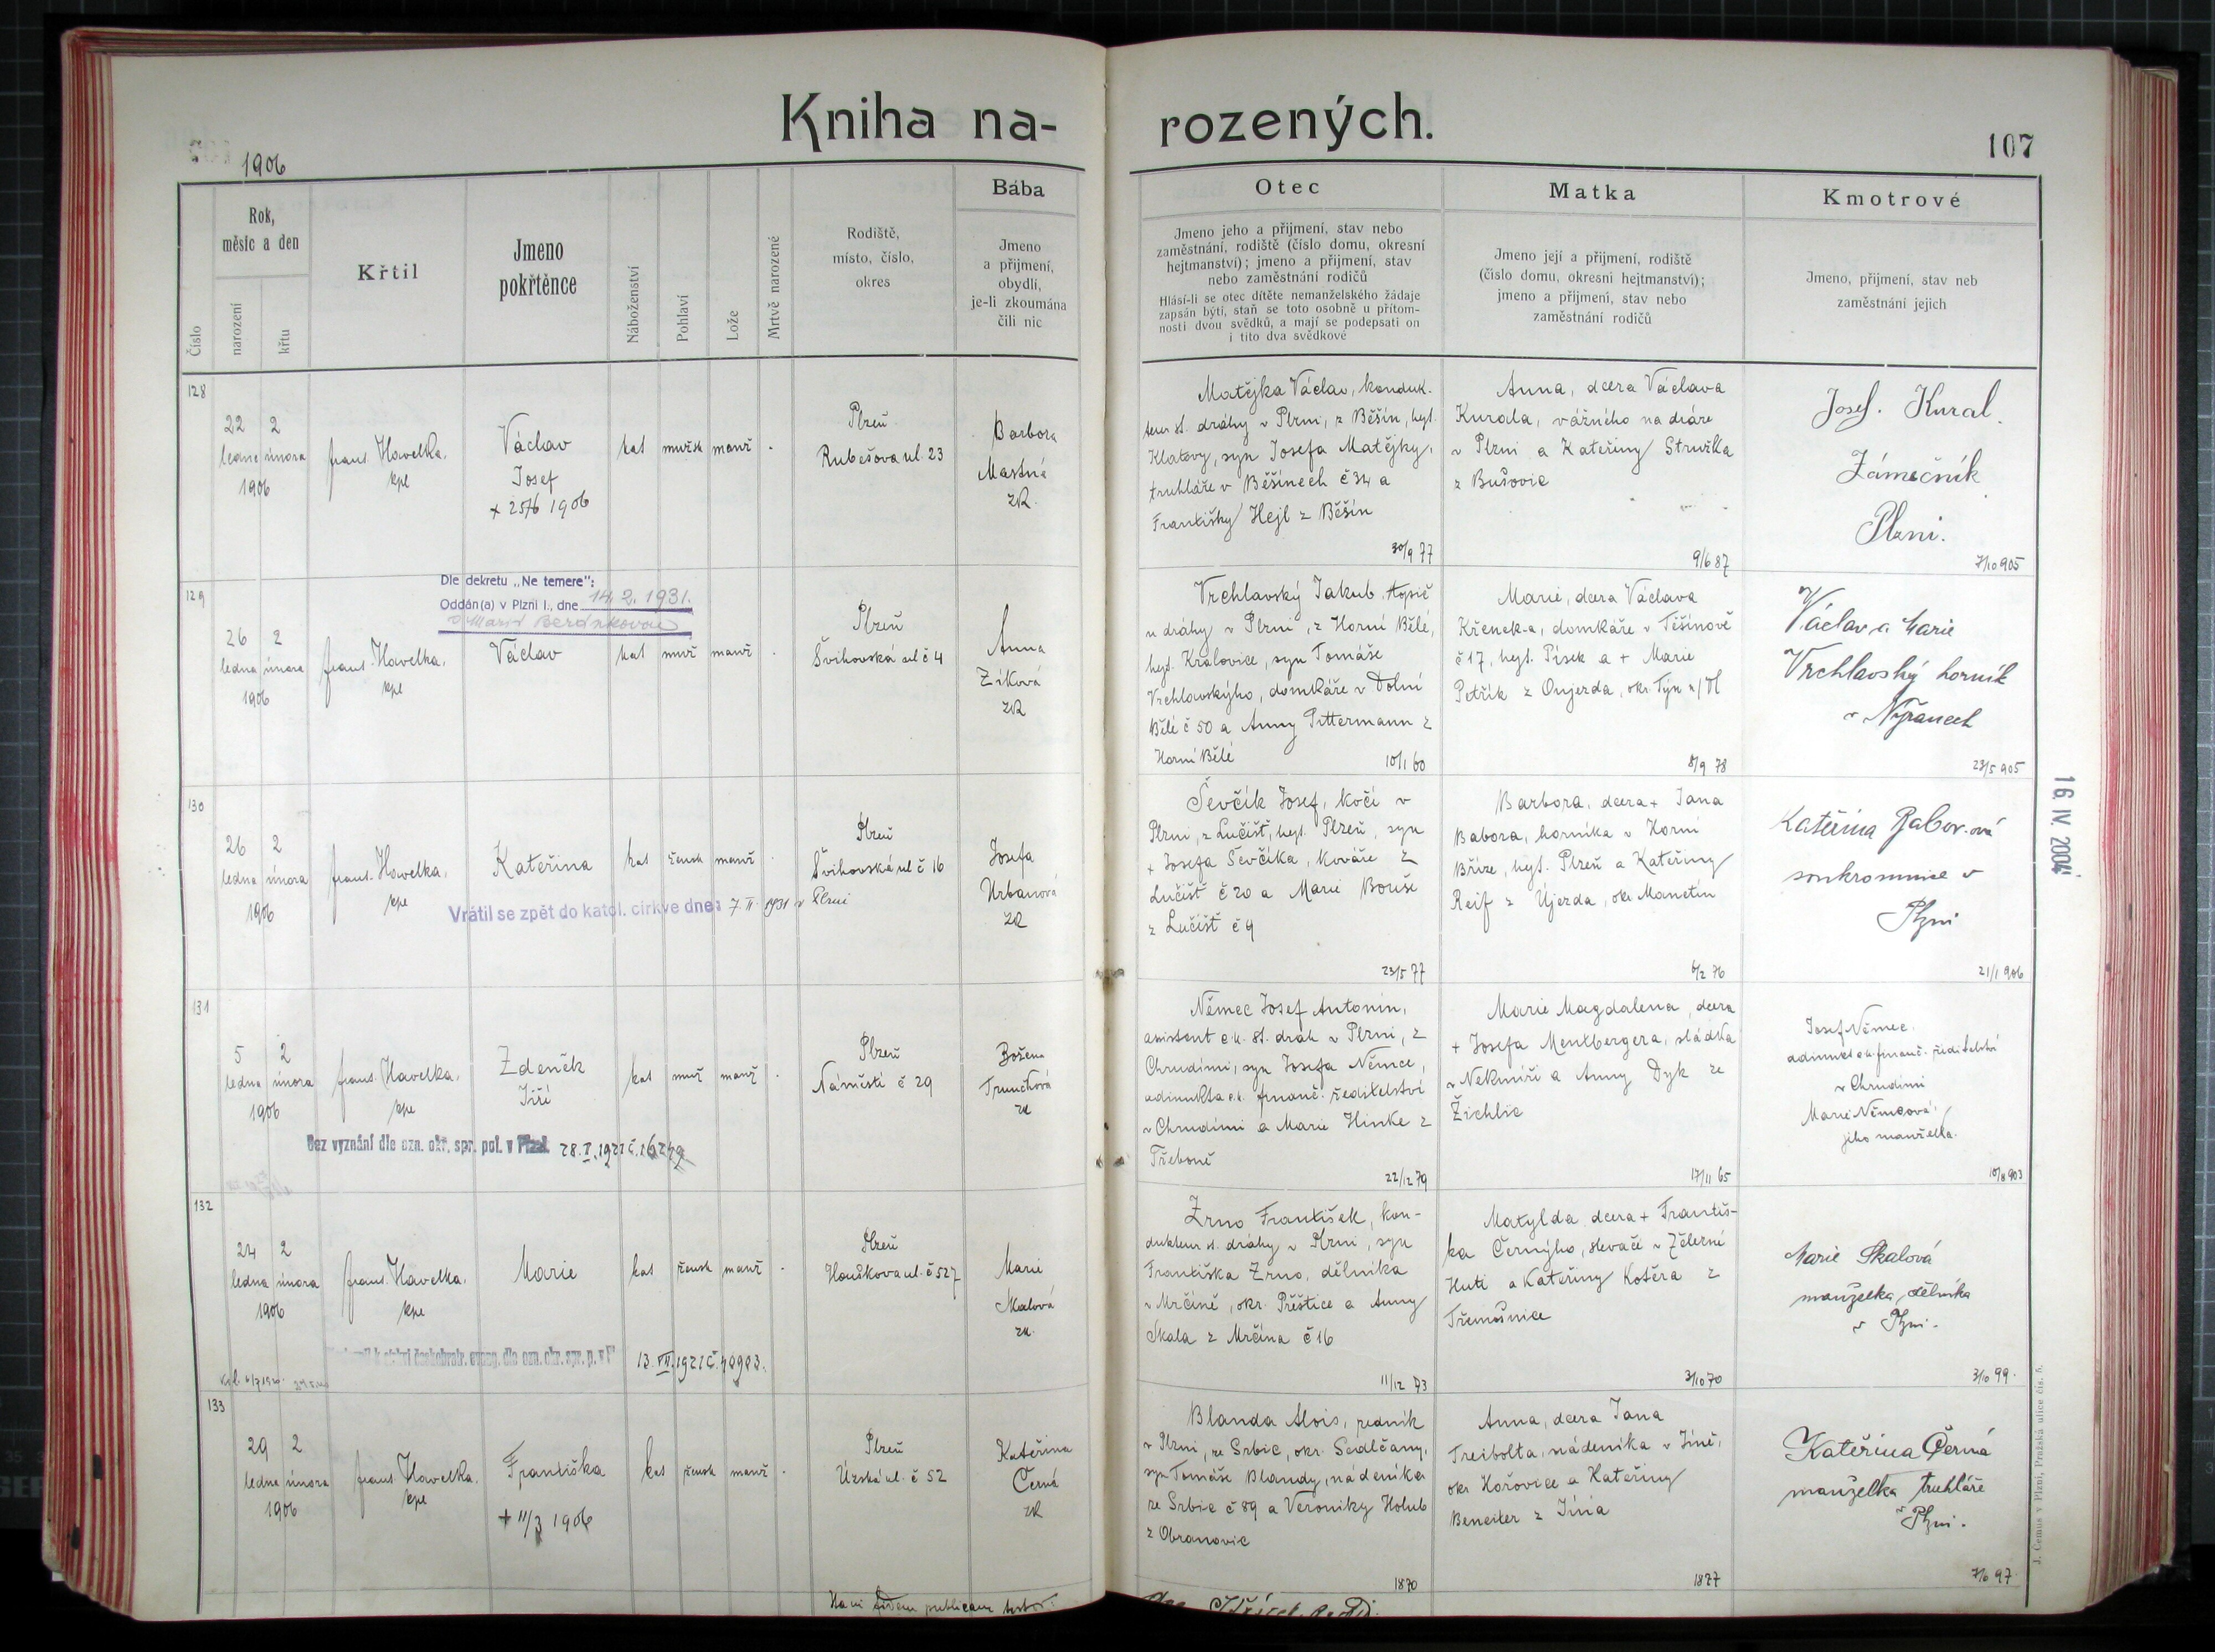 Kniha na-
rozených.
107
1906
Číslo
Rok,
měsíc a den
narození
křtu
Křtil
Jmeno
pokřtěnce
Náboženství
Pohlaví
Lože
Mrtvě narozené
Rodiště,
místo, číslo,
okres
Bába
Jmeno
a přijmení,
obydlí,
je-li zkoumána
čili nic
Otec
Jmeno jeho a přijmení, stav nebo
zaměstnání, rodiště (číslo domu, okresní
hejtmanství); jmeno a přijmení, stav
nebo zaměstnání rodičů
Hlásí-li se otec dítěte nemanželského žádaje
zapsán býti, staň se toto osobně u přítom-
nosti dvou svědků, a mají se podepsati on
i tito dva svědkové
Matka
Jmeno její a přijmení, rodiště
(číslo domu, okresní hejtmanství);
jmeno a přijmení, stav nebo
zaměstnání rodičů
Kmotrové
Jmeno, přijmení, stav neb
zaměstnání jejich
128
22 2
ledna února
1906
frant. Havelka,
kpl
Václav
Josef
+ 25/6 1906
kat mužsk manž
Plzeň
Rubešova ul. 23
Barbora
Mastná
zk.
Matějka Václav, konduk-
teur st. dráhy v Plzni, z Běšin, hejt.
Klatovy, syn Josefa Matějky,
truhláře v Běšinech č 34 a
Františky Hejl z Běšin
30/9 77
Anna, dcera Václava
Kurala, vážného na dráze
v Plzni a Kateřiny Stružka
z Bušovic
9/6 87
Josef. Kural.
Zámečník
Plzni.
7/10 905
129
Dle dekretu „Ne temere":
Oddán(a) v Plzni I., dne 14. 2. 1931.
s Marií Beránkovou
26 2
ledna února
1906
frant. Havelka,
kpl
Václav
kat muž manž
Plzeň
Švihovská ul č 4
Anna
Zíková
zk
Vrchlavský Jakub, topič
u dráhy v Plzni, z Horní Bělé,
hejt. Kralovice, syn Tomáše
Vrchlavskýho, domkáře v Dolní
Bělé č 50 a Anny Pittermann z
Horní Bělé
10/1 60
Marie, dcera Václava
Křenek-a, domkáře v Těšínově
č 17, hejt. Písek a + Marie
Petřík z Onjezda, okr. Týn n/Vl
8/9 78
Václav a Marie
Vrchlavský horník
v Nýřanech
23/5 905
130
26 2
ledna února
1906
frant. Havelka,
kpl
Kateřina
kat žensk manž
Plzeň
Švihovská ul č 16
Vrátil se zpět do katol. církve dne: 7. II. 1931 v Plzni
Josefa
Urbanová
zk
Ševčík Josef, kočí v
Plzni, z Lučišť, hejt. Plzeň, syn
+ Josefa Ševčíka, kováře z
Lučišť č 20 a Marie Bouše
z Lučišť č 9
23/5 77
Barbora, dcera + Jana
Babora, horníka v Horní
Bříze, hejt. Plzeň a Kateřiny
Reif z Újezda, okr Manetín
6/2 76
Kateřina Babor.ová
soukromnice v
Plzni
21/1 906
16. IV. 2004
131
5 2
ledna února
1906
frant. Havelka,
kpl
Zdeněk
Jiří
kat muž manž
Plzeň
Náměstí č 29
Božena
Trunčková
zk
Bez vyznání dle ozn. okr. spr. pol. v Plzni 28. I. 1921 č. 16249
Němec Josef Antonín,
asistent c.k. st. drah v Plzni, z
Chrudimi, syn Josefa Němce,
adjunkta c.k. finanč. ředitelství
v Chrudimi a Marie Hinke z
Třeboně
22/12 79
Marie Magdalena, dcera
+ Josefa Mentbergera, sládka
v Nekmíři a Anny Dyk ze
Žichlic
17/11 65
Josef Němec.
adjunkt c.k. finanč. ředitelství
v Chrudimi
Marie Němcová,
jeho manželka.
10/8 903
132
24 2
ledna února
1906
frant. Havelka,
kpl
Marie
kat žensk manž
Plzeň
Houškova ul. č 527
Marie
Malová
zk.
k církvi českobratr. evang. dle ozn. okr. spr. p. v Pl
13. VII. 1921 č. 40903.
Zrno František, kon-
dukteur st. dráhy v Plzni, syn
Františka Zrno, dělníka
v Mrčíně, okr. Přeštice a Anny
Skala z Mrčína č 16
11/12 73
Matylda dcera + Františ-
ka Černýho, slevače v Zelezné
Huti a Kateřiny Kotěra z
Třemošnice
3/10 70
Marie Skalová
manželka dělníka
v Plzni.
3/10 99.
133
29 2
ledna února
1906
frant. Havelka,
kpl
Františka
+ 11/3 1906
kat žensk manž
Plzeň
Úzská ul. č 52
Kateřina
Černá
zk
Blanda Alois, zedník
v Plzni, ze Srbic, okr. Sedlčany,
syn Tomáše Blandy, nádeníka
ze Srbic č 89 a Veroniky Holub
z Obranovic
1870
Anna, dcera Jana
Treibolta, nádeníka v Jíně,
okr Hořovice a Kateřiny
Beneiter z Jína
1877
Kateřina Černá
manželka truhláře
v Plzni.
7/6 97
Hanc fidem publicam
J. Čemus v Plzni, Pražská ulice čís. 8.